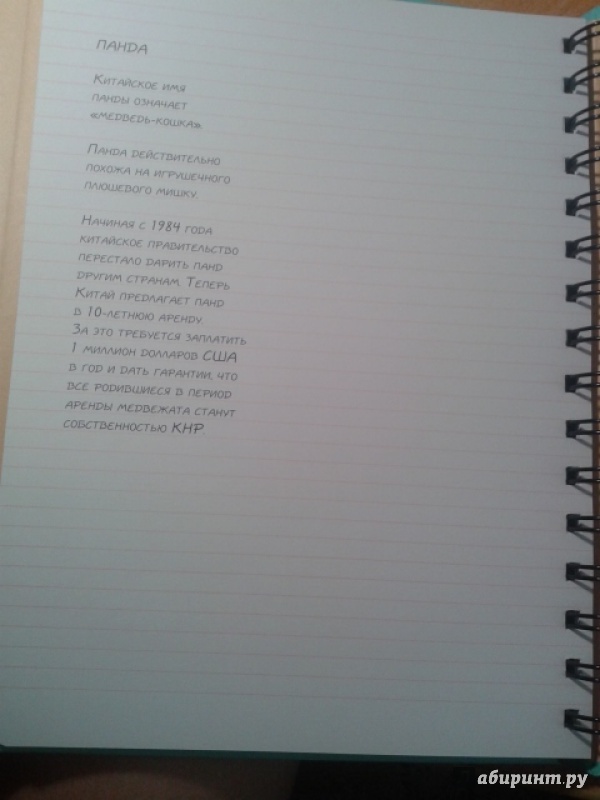 ПАНДА
Китайское имя
панды означает
«медведь-кошка».
Панда действительно
похожа на игрушечного
плюшевого мишку.
Начиная с 1984 года
китайское правительство
перестало дарить панд
другим странам. Теперь
Китай предлагает панд
в 10-летнюю аренду.
За это требуется заплатить
1 миллион долларов США
в год и дать гарантии, что
все родившиеся в период
аренды медвежата станут
собственностью КНР.
абиринт.ру